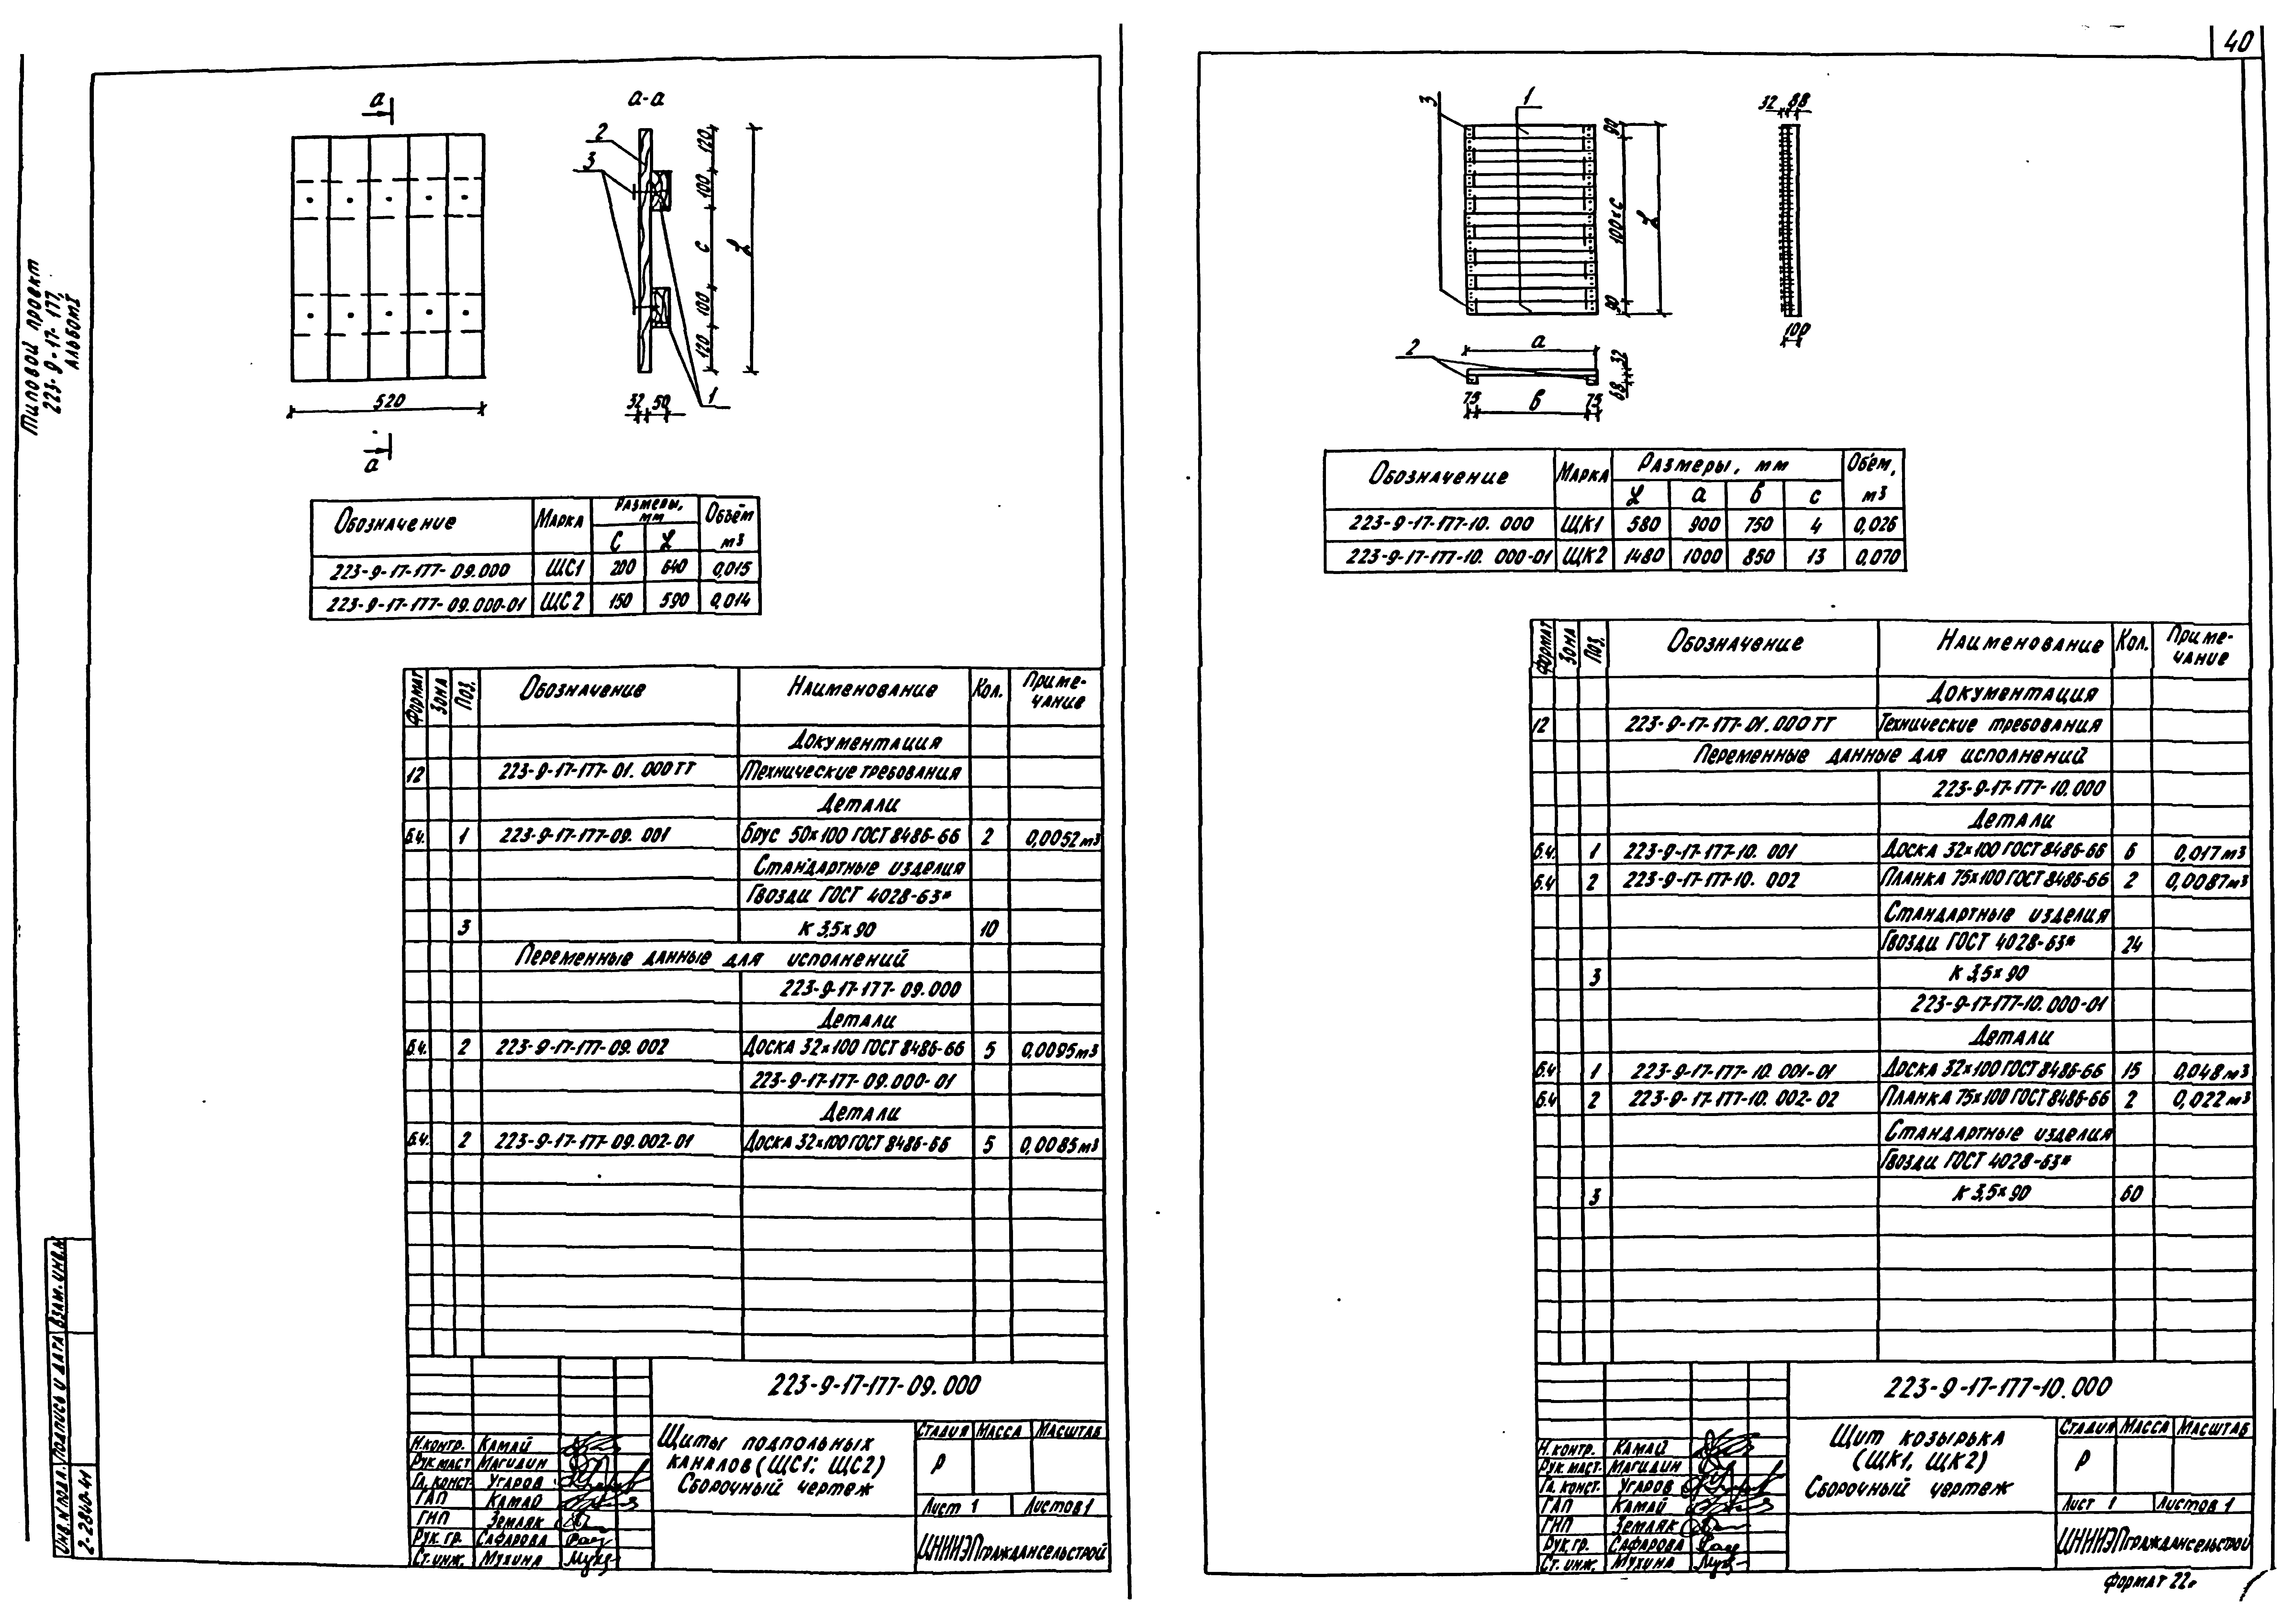 40
Типовой проект
223-9-17-177,
Альбом I
Инв.№ подл. Подпись и дата Взам. инв.№
2-2840-41
а
520
а
а-а
2
3
120
100
С
100
120
L
32 50
1
Обозначение Марка Размеры, мм Объём м3
С L
223-9-17-177-09.000 ЩС1 200 640 0,015
223-9-17-177-09.000-01 ЩС2 150 590 0,014
Формат Зона Поз. Обозначение Наименование Кол. Примечание
Документация
12 223-9-17-177-01.000ТТ Технические требования
Детали
б.ч. 1 223-9-17-177-09.001 Брус 50×100 ГОСТ 8486-66 2 0,0052м3
Стандартные изделия
Гвозди ГОСТ 4028-63*
3 К 3,5×90 10
Переменные данные для исполнений
223-9-17-177-09.000
Детали
б.ч. 2 223-9-17-177-09.002 Доска 32×100 ГОСТ 8486-66 5 0,0095м3
223-9-17-177-09.000-01
Детали
б.ч. 2 223-9-17-177-09.002-01 Доска 32×100 ГОСТ 8486-66 5 0,0085м3
223-9-17-177-09.000
Н.контр. Камай
Рук.маст Магидин
Гл.конст. Угаров
ГАП Камай
ГИП Земляк
Рук.гр. Сафарова
Ст.инж. Мухина
Щиты подпольных
каналов (ЩС1; ЩС2)
Сборочный чертеж
Стадия Масса Масштаб
Р
Лист 1 Листов 1
ЦНИИЭПграждансельстрой
3
1
90
100×С
90
L
32 88
100
2
а
32
68
75 в 75
Обозначение Марка Размеры, мм Объём, м3
L а в с
223-9-17-177-10.000 ЩК1 580 900 750 4 0,026
223-9-17-177-10.000-01 ЩК2 1480 1000 850 13 0,070
Формат Зона Поз. Обозначение Наименование Кол. Примечание
Документация
12 223-9-17-177-01.000ТТ Технические требования
Переменные данные для исполнений
223-9-17-177-10.000
Детали
б.ч. 1 223-9-17-177-10.001 Доска 32×100 ГОСТ 8486-66 6 0,017м3
б.ч 2 223-9-17-177-10.002 Планка 75×100 ГОСТ 8486-66 2 0,0087м3
Стандартные изделия
Гвозди ГОСТ 4028-63* 24
3 К 3,5×90
223-9-17-177-10.000-01
Детали
б.ч 1 223-9-17-177-10.001-01 Доска 32×100 ГОСТ 8486-66 15 0,048м3
б.ч 2 223-9-17-177-10.002-02 Планка 75×100 ГОСТ 8486-66 2 0,022м3
Стандартные изделия
Гвозди ГОСТ 4028-63*
3 К 3,5×90 60
223-9-17-177-10.000
Н.контр. Камай
Рук.маст. Магидин
Гл.конст. Угаров
ГАП Камай
ГИП Земляк
Рук.гр. Сафарова
Ст.инж. Мухина
Щит козырька
(ЩК1, ЩК2)
Сборочный чертеж
Стадия Масса Масштаб
Р
Лист 1 Листов 1
ЦНИИЭПграждансельстрой
Формат 22г